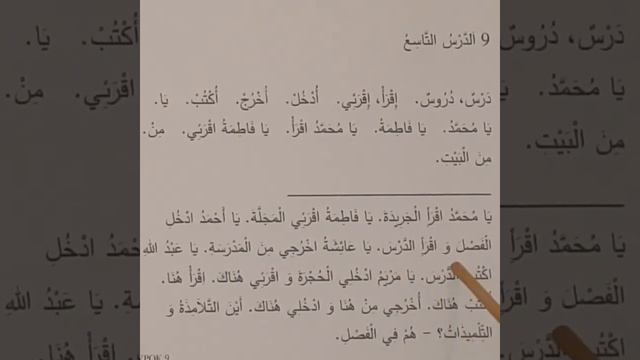 9 اَلدَّرْسُ التَّاسِعُ
دَرْسٌ، دُرُوسٌ. إِقْرَأْ، إِقْرَئِي. أُدْخُلْ. أُخْرُجْ. أُكْتُبْ. يَا.
يَا مُحَمَّدُ. يَا فَاطِمَةُ. يَا مُحَمَّدُ اقْرَأْ. يَا فَاطِمَةُ اقْرَئِي. مِنْ.
مِنَ الْبَيْتِ.
يَا مُحَمَّدُ اقْرَأِ الْجَرِيدَةَ. يَا فَاطِمَةُ اقْرَئِي الْمَجَلَّةَ. يَا أَحْمَدُ ادْخُلِ
الْفَصْلَ وَ اقْرَأِ الدَّرْسَ. يَا عَائِشَةُ اخْرُجِي مِنَ الْمَدْرَسَةِ. يَا عَبْدُ اللهِ
اكْتُبِ الدَّرْسَ. يَا مَرْيَمُ ادْخُلِي الْحُجْرَةَ وَ اقْرَئِي هُنَاكَ. اِقْرَأْ هُنَا.
هُنَاكَ. أُخْرُجِي مِنْ هُنَا وَ ادْخُلِي هُنَاكَ. أَيْنَ التَّلَامِذَةُ وَ
التِّلْمِيذَاتُ؟ – هُمْ فِي الْفَصْلِ.
УРОК 9